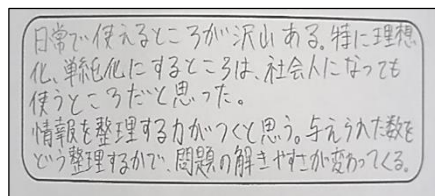 日常で使えるところが沢山ある。特に理想
化、単純化にするところは、社会人になっても
使うところだと思った。
情報を整理する力がつくと思う。与えられた数を
どう整理するかで、問題の解きやすさが変わってくる。